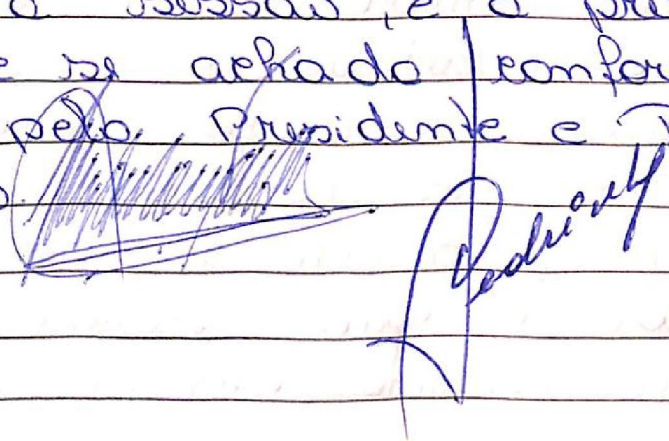 a sessão, e a pre
e se achado confor
pelo Presidente e